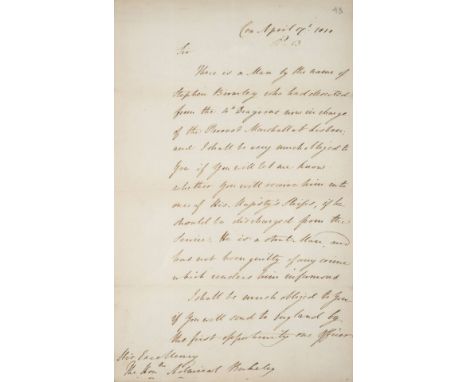 48
Coa April 17th. 1810
Sir
There is a Man by the name of
Stephen Bromley who had deserted
from the 4th Dragoons now in charge
of the Provost Marshall at Lisbon;
and I shall be very much obliged to
You if You will let me know
whether You will receive him into
one of His Majesty's Ships, if he
should be discharged from the
Service. He is a stout Man, and
has not been guilty of any crime
which renders him infamous
I shall be much obliged to You
if You will send to England by
the first opportunity one Officer
His Excellency
The Honble. Admiral Berkeley